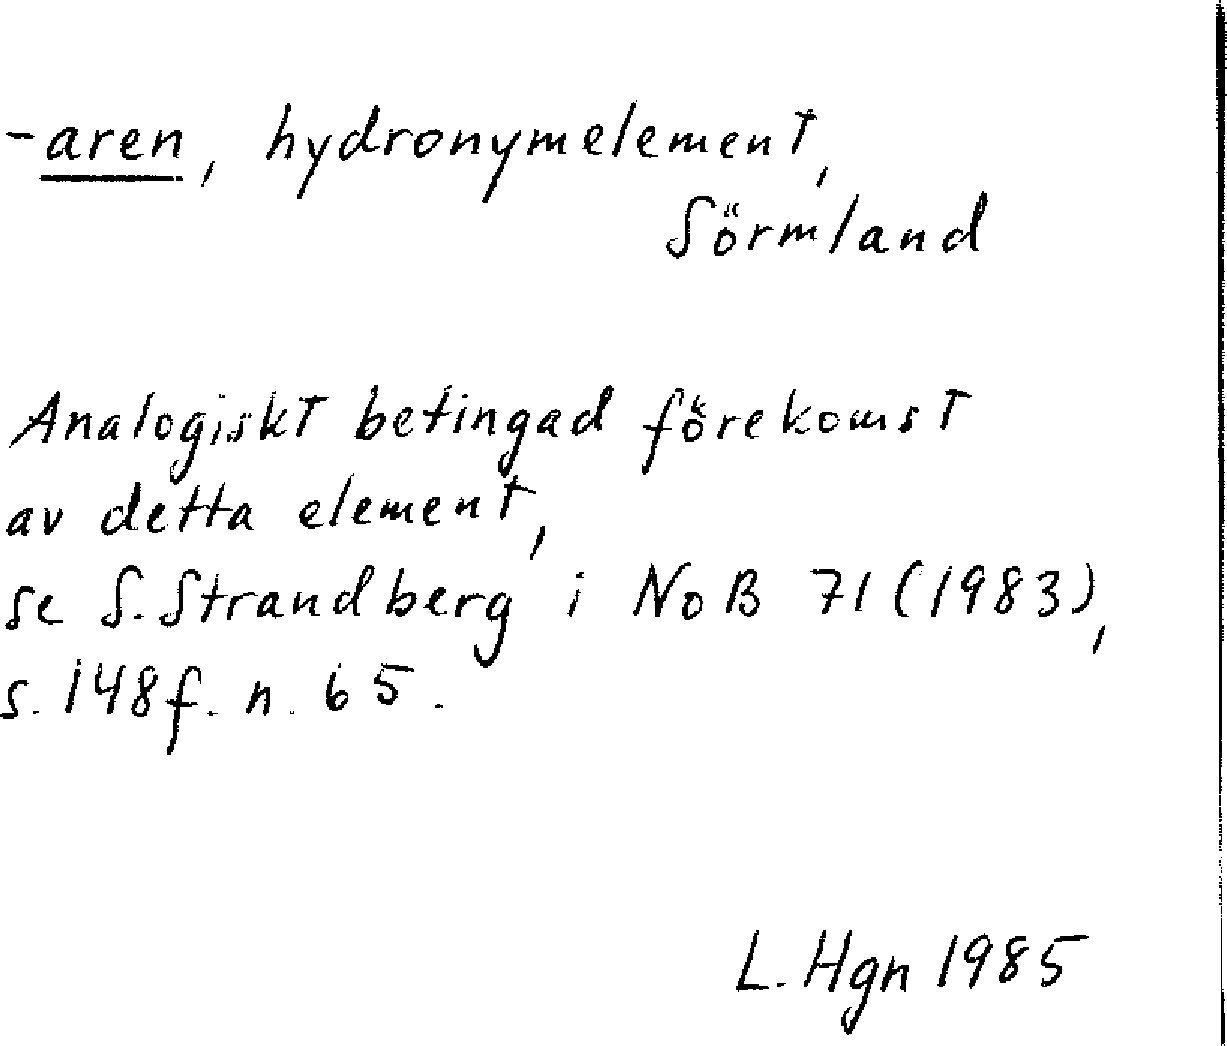 -aren, hydronymelement,
Sörmland
Analogiskt betingad förekomst
av detta element,
se S. Strandberg i NoB 71 (1983),
s. 148f. n. 65.
L. Hgn 1985